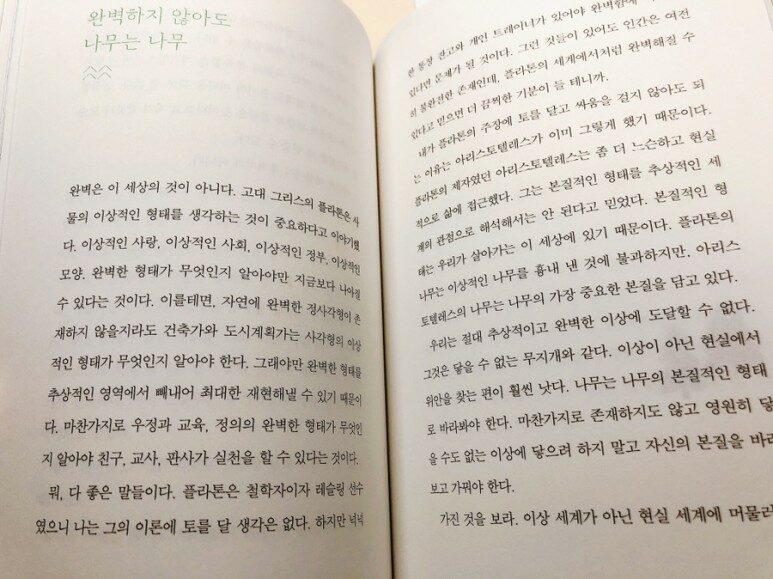 완벽하지 않아도
나무는 나무
완벽은 이 세상의 것이 아니다. 고대 그리스의 플라톤은 사
물의 이상적인 형태를 생각하는 것이 중요하다고 이야기했
다. 이상적인 사랑, 이상적인 사회, 이상적인 정부, 이상적인
모양. 완벽한 형태가 무엇인지 알아야만 지금보다 나아질
수 있다는 것이다. 이를테면, 자연에 완벽한 정사각형이 존
재하지 않을지라도 건축가와 도시계획가는 사각형의 이상
적인 형태가 무엇인지 알아야 한다. 그래야만 완벽한 형태를
추상적인 영역에서 빼내어 최대한 재현해낼 수 있기 때문이
다. 마찬가지로 우정과 교육, 정의의 완벽한 형태가 무엇인
지 알아야 친구, 교사, 판사가 실천을 할 수 있다는 것이다.
뭐, 다 좋은 말들이다. 플라톤은 철학자이자 레슬링 선수
였으니 나는 그의 이론에 토를 달 생각은 없다. 하지만 넉넉
한 통장 잔고와 개인 트레이너가 있어야 완벽함에
있다면 문제가 될 것이다. 그런 것들이 있어도 인간은 여전
히 불완전한 존재인데, 플라톤의 세계에서처럼 완벽해질 수
있다고 믿으면 더 끔찍한 기분이 들 테니까.
내가 플라톤의 주장에 토를 달고 싸움을 걸지 않아도 되
는 이유는 아리스토텔레스가 이미 그렇게 했기 때문이다.
플라톤의 제자였던 아리스토텔레스는 좀 더 느슨하고 현실
적으로 삶에 접근했다. 그는 본질적인 형태를 추상적인 세
계의 관점으로 해석해서는 안 된다고 믿었다. 본질적인 형
태는 우리가 살아가는 이 세상에 있기 때문이다. 플라톤의
나무는 이상적인 나무를 흉내 낸 것에 불과하지만, 아리스
토텔레스의 나무는 나무의 가장 중요한 본질을 담고 있다.
우리는 절대 추상적이고 완벽한 이상에 도달할 수 없다.
그것은 닿을 수 없는 무지개와 같다. 이상이 아닌 현실에서
위안을 찾는 편이 훨씬 낫다. 나무는 나무의 본질적인 형태
로 바라봐야 한다. 마찬가지로 존재하지도 않고 영원히 닿
을 수도 없는 이상에 닿으려 하지 말고 자신의 본질을 바라
보고 가꿔야 한다.
가진 것을 보라. 이상 세계가 아닌 현실 세계에 머물러